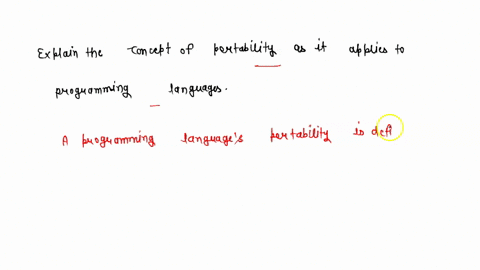 Explain the concept of portability as it applies to
programming languages.
A programming language's portability is defi